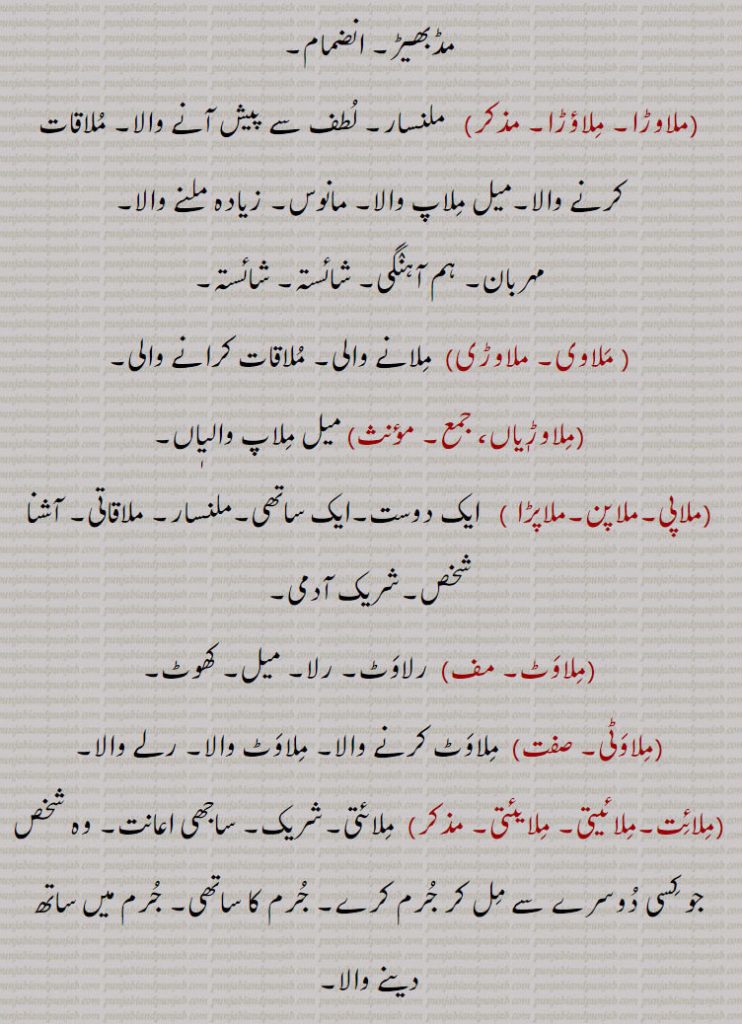 مڈبھیڑ۔ انضمام۔
(ملاوڑا۔ مِلاؤڑا۔ مذکر) ملنسار۔ لُطف سے پیش آنے والا۔ مُلاقات
کرنے والا۔میل مِلاپ والا۔ مانوس۔ زیادہ ملنے والا۔
مہربان۔ ہم آہنگی۔ شائستہ۔ شائستہ۔
( مَلاوی۔ ملاوڑی) مِلانے والی۔ مُلاقات کرانے والی۔
(مِلاوڑیاں، جمع۔ مؤنث) میل مِلاپ والیاں۔
(ملاپی۔ملاپن۔ملاپڑا ) ایک دوست۔ایک ساتھی۔ملنسار۔ ملاقاتی۔ آشنا
شخص۔شریک آدمی۔
(مِلاوَٹ۔ مف) رلاوَٹ۔ رلا۔ میل۔ کھوٹ۔
(مِلاوَٹی۔ صفت) مِلاوَٹ کرنے والا۔ مِلاوَٹ والا۔ رلے والا۔
(مِلائِت۔مِلائیتی۔ مِلایئتی۔ مذکر) مِلائتی۔شریک۔ ساجھی اعانت۔ وہ شخص
جو کِسی دُوسرے سے مِل کر جُرم کرے۔ جُرم کا ساتھی۔ جُرم میں ساتھ
دینے والا۔